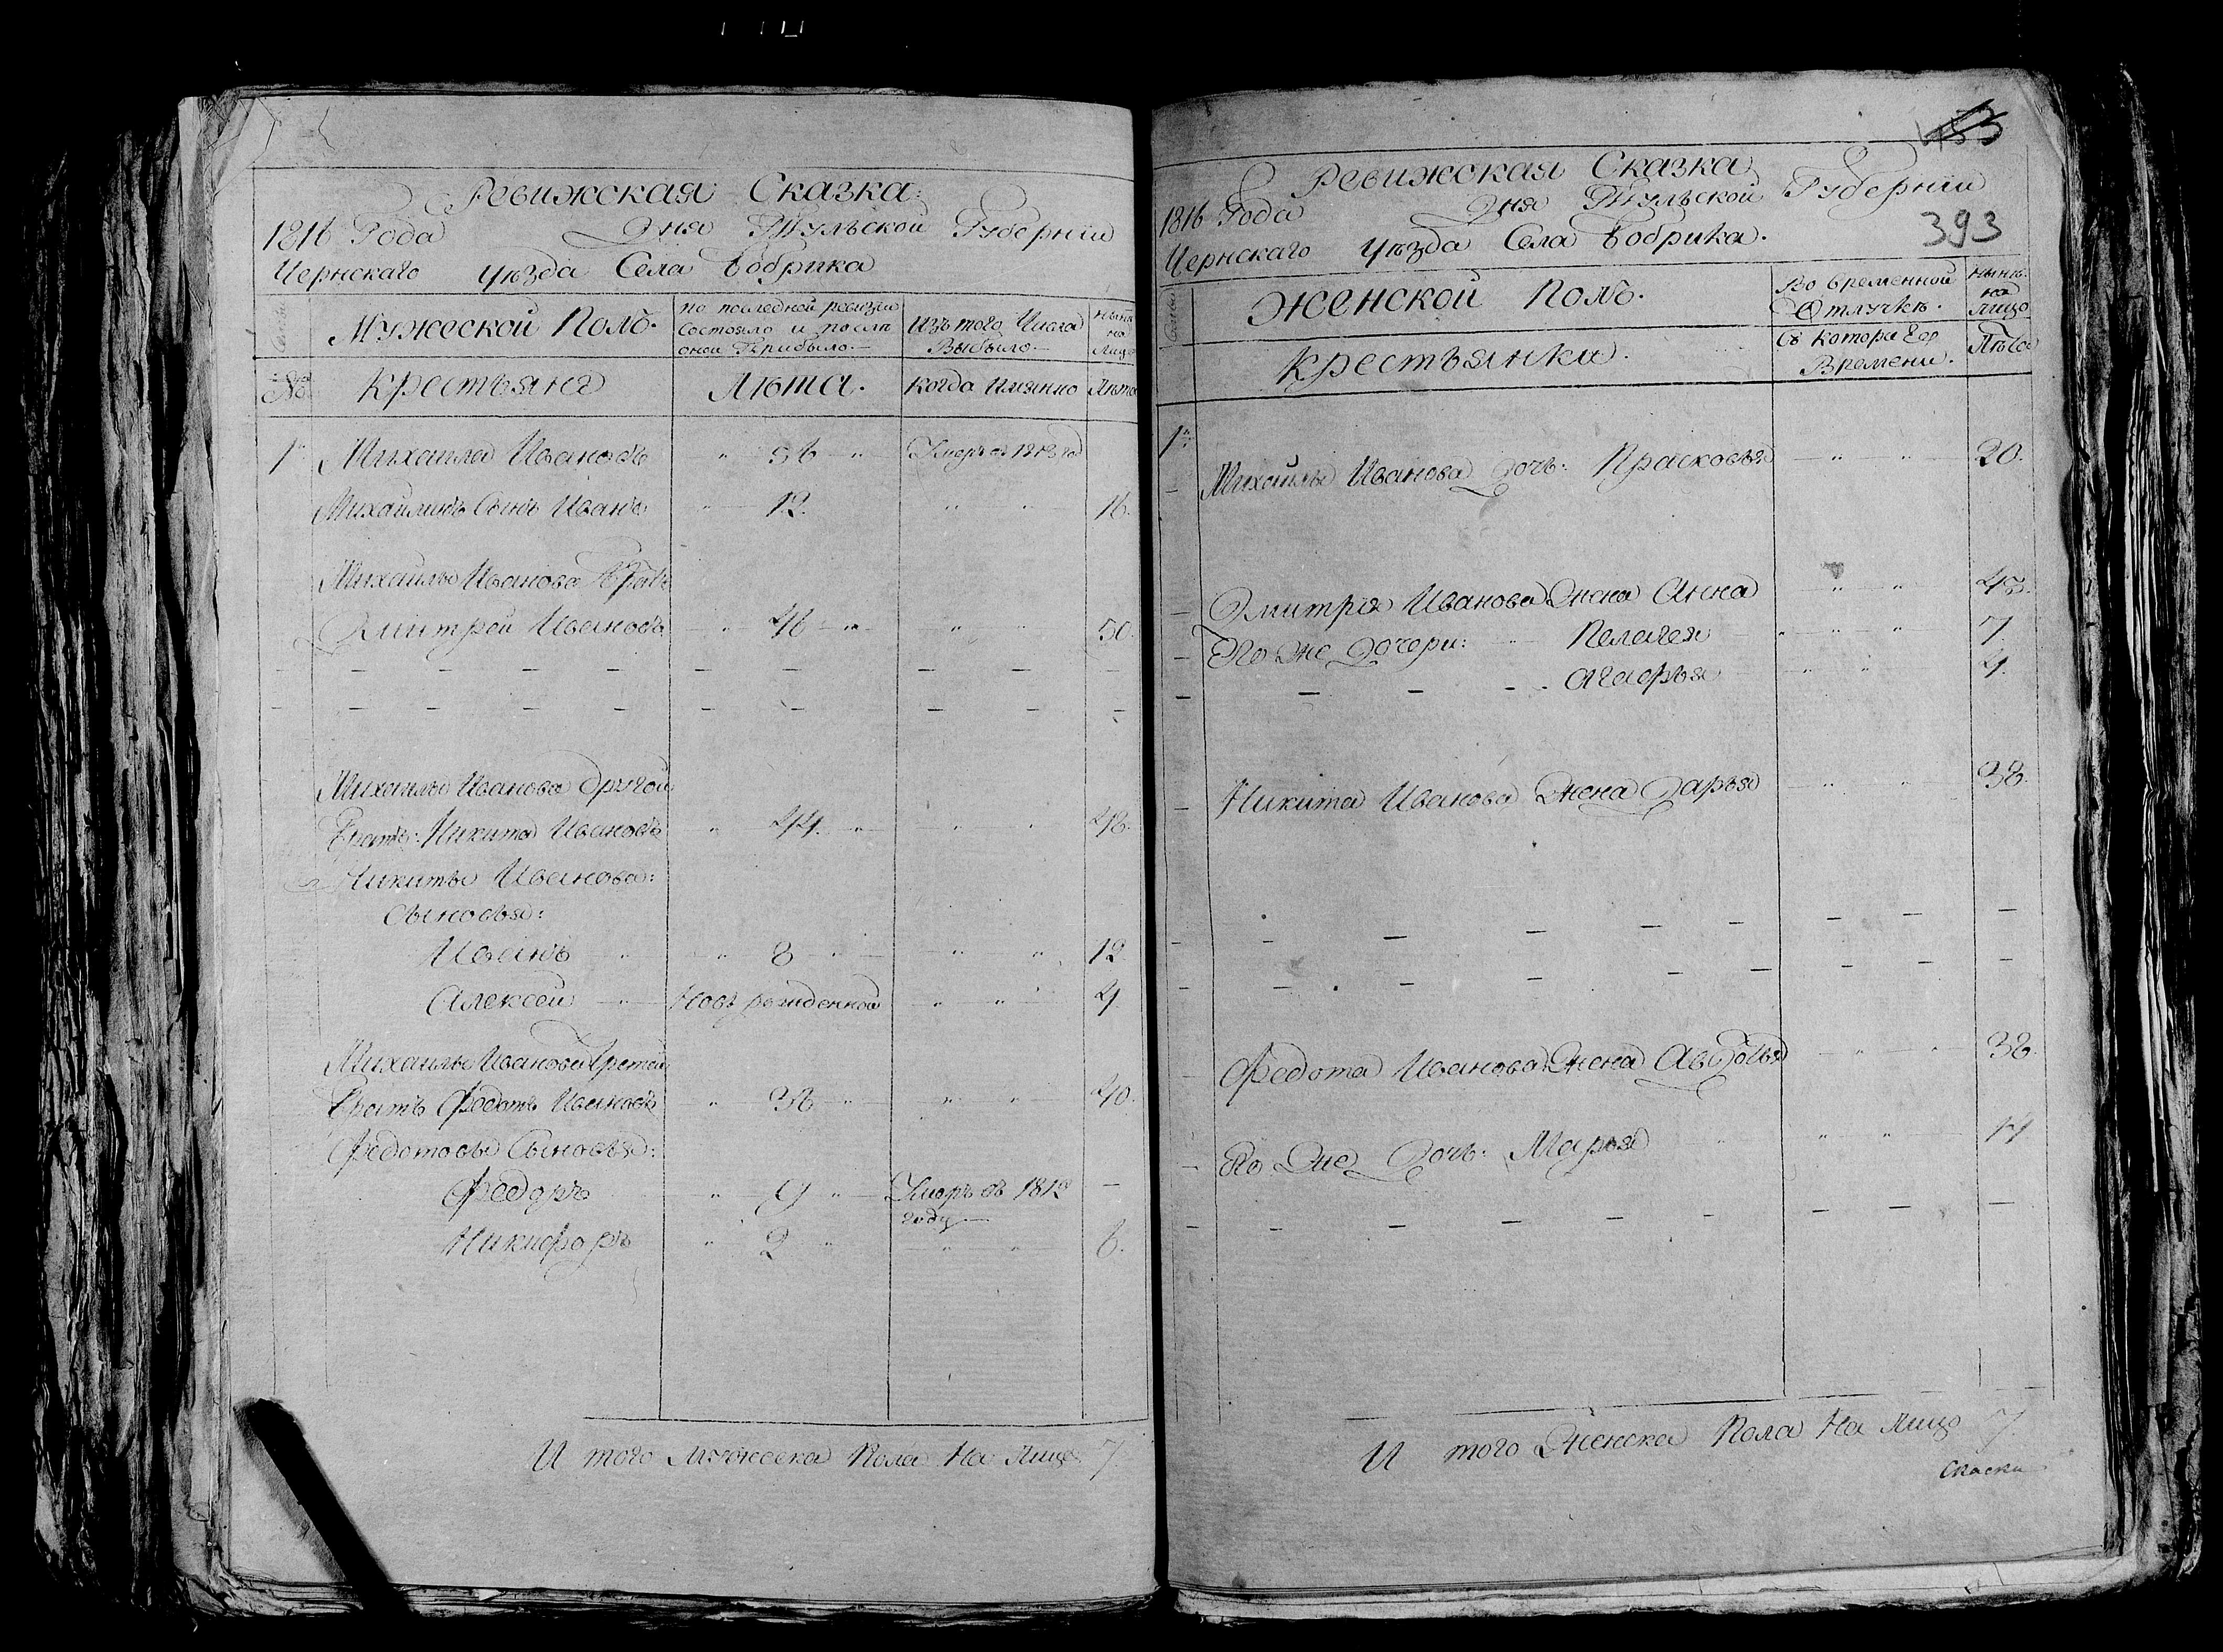 Ревижская Сказка:
1816 Года Дня Тульской Губернии
Чернскаго уѣзда Села Бобрика
Мужеской Полъ.
по последней ревизии
состояло и послѣ
оной Прибыло.
Изъ того Числа
Выбыло.
Нынѣ
на
Лицо
№ крестьяня
Лѣта.
когда имянно
Лѣта
1 Михаила Ивановъ " 56 " Умеръ в 1813 го
Михайлинъ Сынъ Иванъ " 12. " " 16.
Михайлы Иванова Братъ
Дмитрей Ивановъ " 46 " " " 50.
Михайлы Иванова другой
Братъ: Никита Ивановъ " 44. " " " 48.
Никиты Иванова:
Сыновья:
Иванъ " " 8 " " " 12
Алексей " Новъ рожденной " " 4.
Михайлы Иванова третей
Братъ Федотъ Ивановъ " 36 " " " 40.
Федотовы Сыновья:
Федоръ " 9 " Умеръ въ 1812 —
году.
Никифоръ " 2 " " " 6.
И того мужеска Пола На Лицо 7.
453
Ревижская Сказка
1816 Года Дня Тульской Губернии
393
Чернскаго уѣзда Села Бобрика.
Женской Полъ.
Во временной
Отлучкѣ.
Нынѣ.
на
лицо
крестьянки.
Съ котораго
Времени.
Лѣта
1.
Михайлы Иванова Дочь: Прасковья " " 20.
Дмитрия Иванова Жена Анна " " 43.
Его Же Дочери: Пелагея " " " 7.
Агафья " " 4.
Никита Иванова Жена Дарья " " 38.
Федота Иванова Жена Авдотья " " 38.
Его Же Дочь: Марья " " " 14
И того Женска Пола На Лицо 7.
Скаски